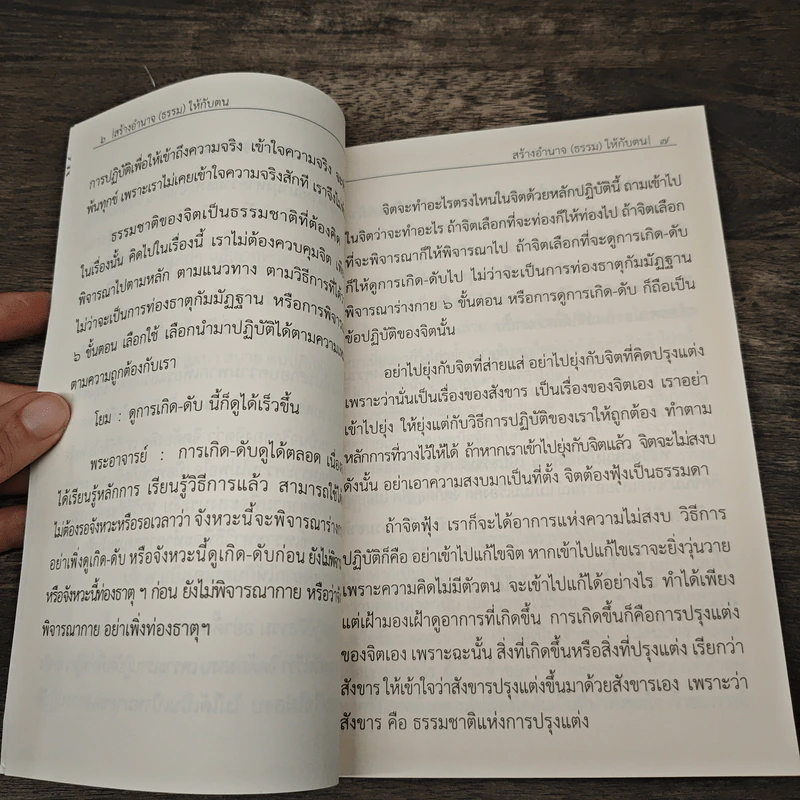 ๖ |สร้างอำนาจ (ธรรม) ให้กับตน
การปฏิบัติเพื่อให้เข้าถึงความจริง เข้าใจความจริง
พ้นทุกข์ เพราะเราไม่เคยเข้าใจความจริงสักที เราจึง
ธรรมชาติของจิตเป็นธรรมชาติที่ต้องคิด
ในเรื่องนั้น คิดไปในเรื่องนี้ เราไม่ต้องควบคุมจิต
พิจารณาไปตามหลัก ตามแนวทาง ตามวิธีการที่
ไม่ว่าจะเป็นการท่องธาตุกัมมัฏฐาน หรือการ
๖ ขั้นตอน เลือกใช้ เลือกนำมาปฏิบัติได้ตามความ
ตามความถูกต้องกับเรา
โยม : ดูการเกิด-ดับ นี้ก็ดูได้เร็วขึ้น
พระอาจารย์ : การเกิด-ดับดูได้ตลอด
ได้เรียนรู้หลักการ เรียนรู้วิธีการแล้ว สามารถใช้
ไม่ต้องรอจังหวะหรือรอเวลาว่า จังหวะนี้จะพิจารณา
อย่าเพิ่งดูเกิด-ดับ หรือจังหวะนี้ดูเกิด-ดับก่อน ยังไม่
หรือจังหวะนี้ท่องธาตุ ฯ ก่อน ยังไม่พิจารณากาย หรือ
พิจารณากาย อย่าเพิ่งท่องธาตุฯ
สร้างอำนาจ (ธรรม) ให้กับตน| ๗
จิตจะทำอะไรตรงไหนในจิตด้วยหลักปฏิบัตินี้ ถามเข้าไป
ในจิตว่าจะทำอะไร ถ้าจิตเลือกที่จะท่องก็ให้ท่องไป ถ้าจิตเลือก
ที่จะพิจารณาก็ให้พิจารณาไป ถ้าจิตเลือกที่จะดูการเกิด-ดับ
ก็ให้ดูการเกิด-ดับไป ไม่ว่าจะเป็นการท่องธาตุกัมมัฏฐาน
พิจารณาร่างกาย ๖ ขั้นตอน หรือการดูการเกิด-ดับ ก็ถือเป็น
ข้อปฏิบัติของจิตนั้น
อย่าไปยุ่งกับจิตที่ส่ายแส่ อย่าไปยุ่งกับจิตที่คิดปรุงแต่ง
เพราะว่านั่นเป็นเรื่องของสังขาร เป็นเรื่องของจิตเอง เราอย่า
เข้าไปยุ่ง ให้ยุ่งแต่กับวิธีการปฏิบัติของเราให้ถูกต้อง ทำตาม
หลักการที่วางไว้ให้ได้ ถ้าหากเราเข้าไปยุ่งกับจิตแล้ว จิตจะไม่สงบ
ดังนั้น อย่าเอาความสงบมาเป็นที่ตั้ง จิตต้องฟุ้งเป็นธรรมดา
ถ้าจิตฟุ้ง เราก็จะได้อาการแห่งความไม่สงบ วิธีการ
ปฏิบัติก็คือ อย่าเข้าไปแก้ไขจิต หากเข้าไปแก้ไขเราจะยิ่งวุ่นวาย
เพราะความคิดไม่มีตัวตน จะเข้าไปแก้ได้อย่างไร ทำได้เพียง
แต่เฝ้ามองเฝ้าดูอาการที่เกิดขึ้น การเกิดขึ้นก็คือการปรุงแต่ง
ของจิตเอง เพราะฉะนั้น สิ่งที่เกิดขึ้นหรือสิ่งที่ปรุงแต่ง เรียกว่า
สังขาร ให้เข้าใจว่าสังขารปรุงแต่งขึ้นมาด้วยสังขารเอง เพราะว่า
สังขาร คือ ธรรมชาติแห่งการปรุงแต่ง